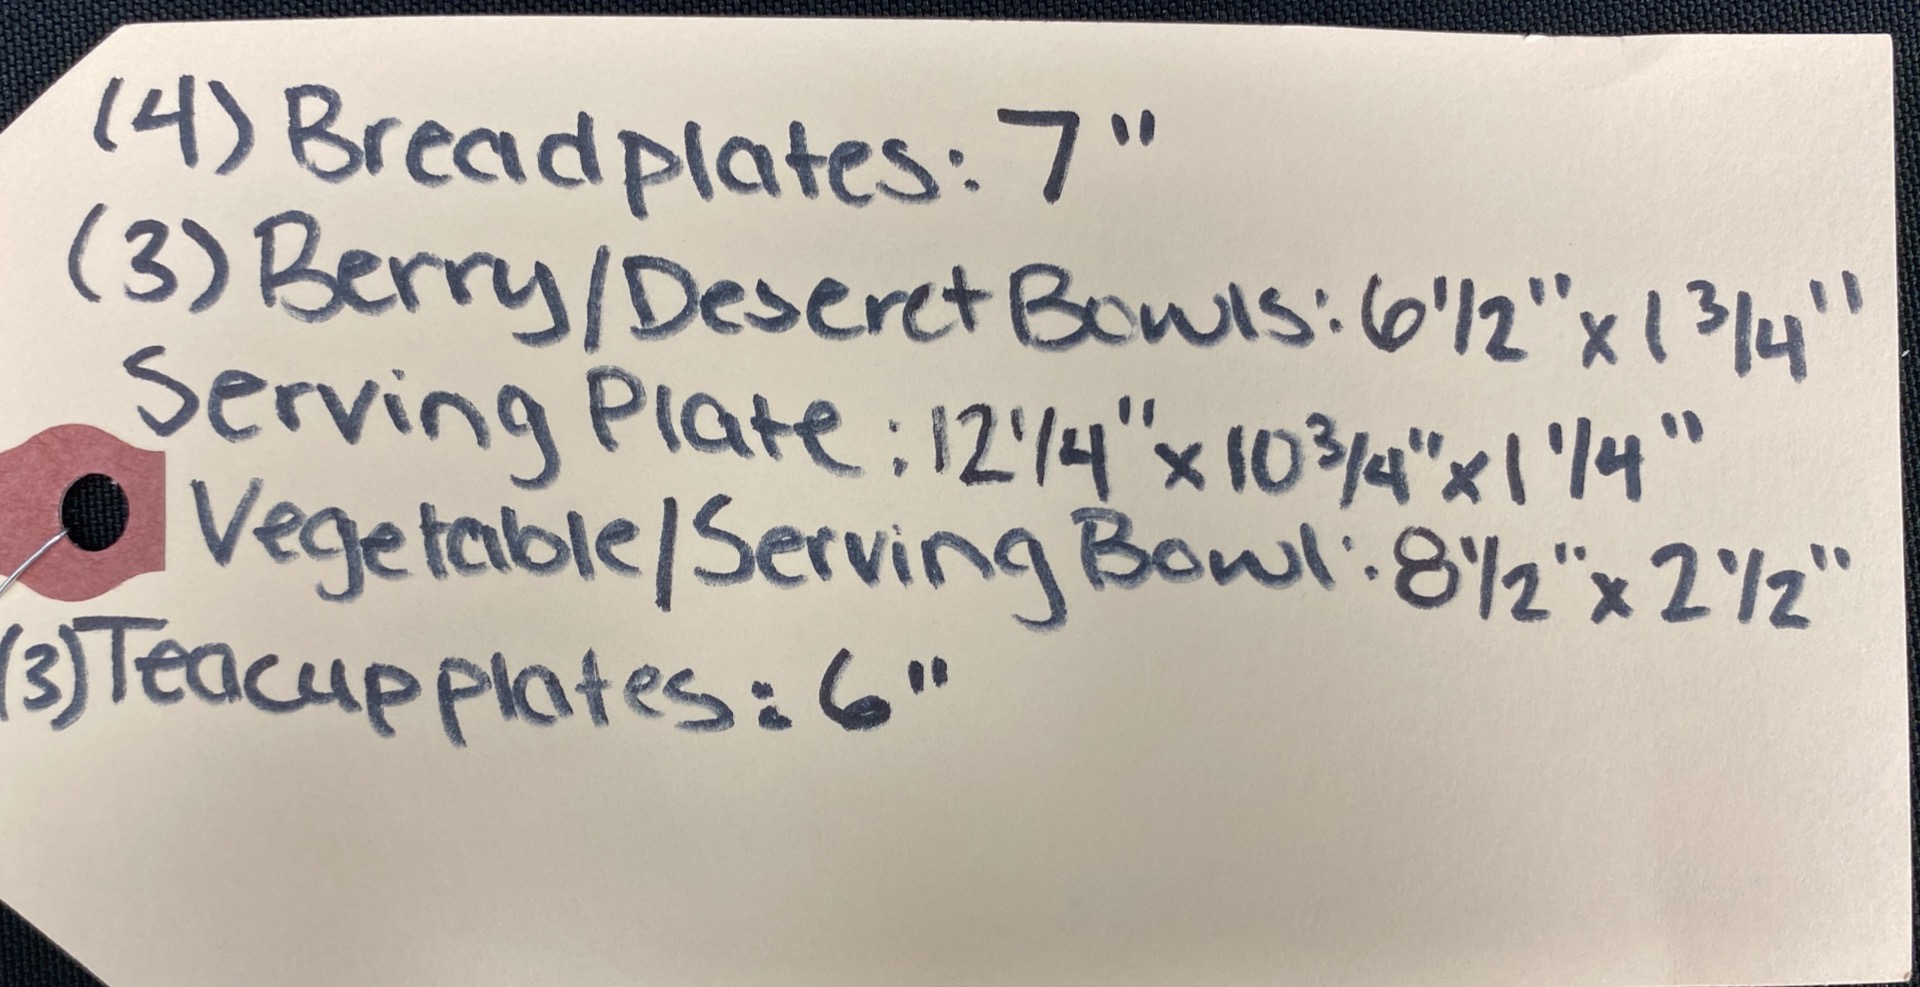 (4) Breadplates: 7"
(3) Berry/Deseret Bowls: 6 1/2" x 1 3/4"
Serving Plate: 12 1/4" x 10 3/4" x 1 1/4"
Vegetable/Serving Bowl: 8 1/2" x 2 1/2"
(3) Teacup plates: 6"